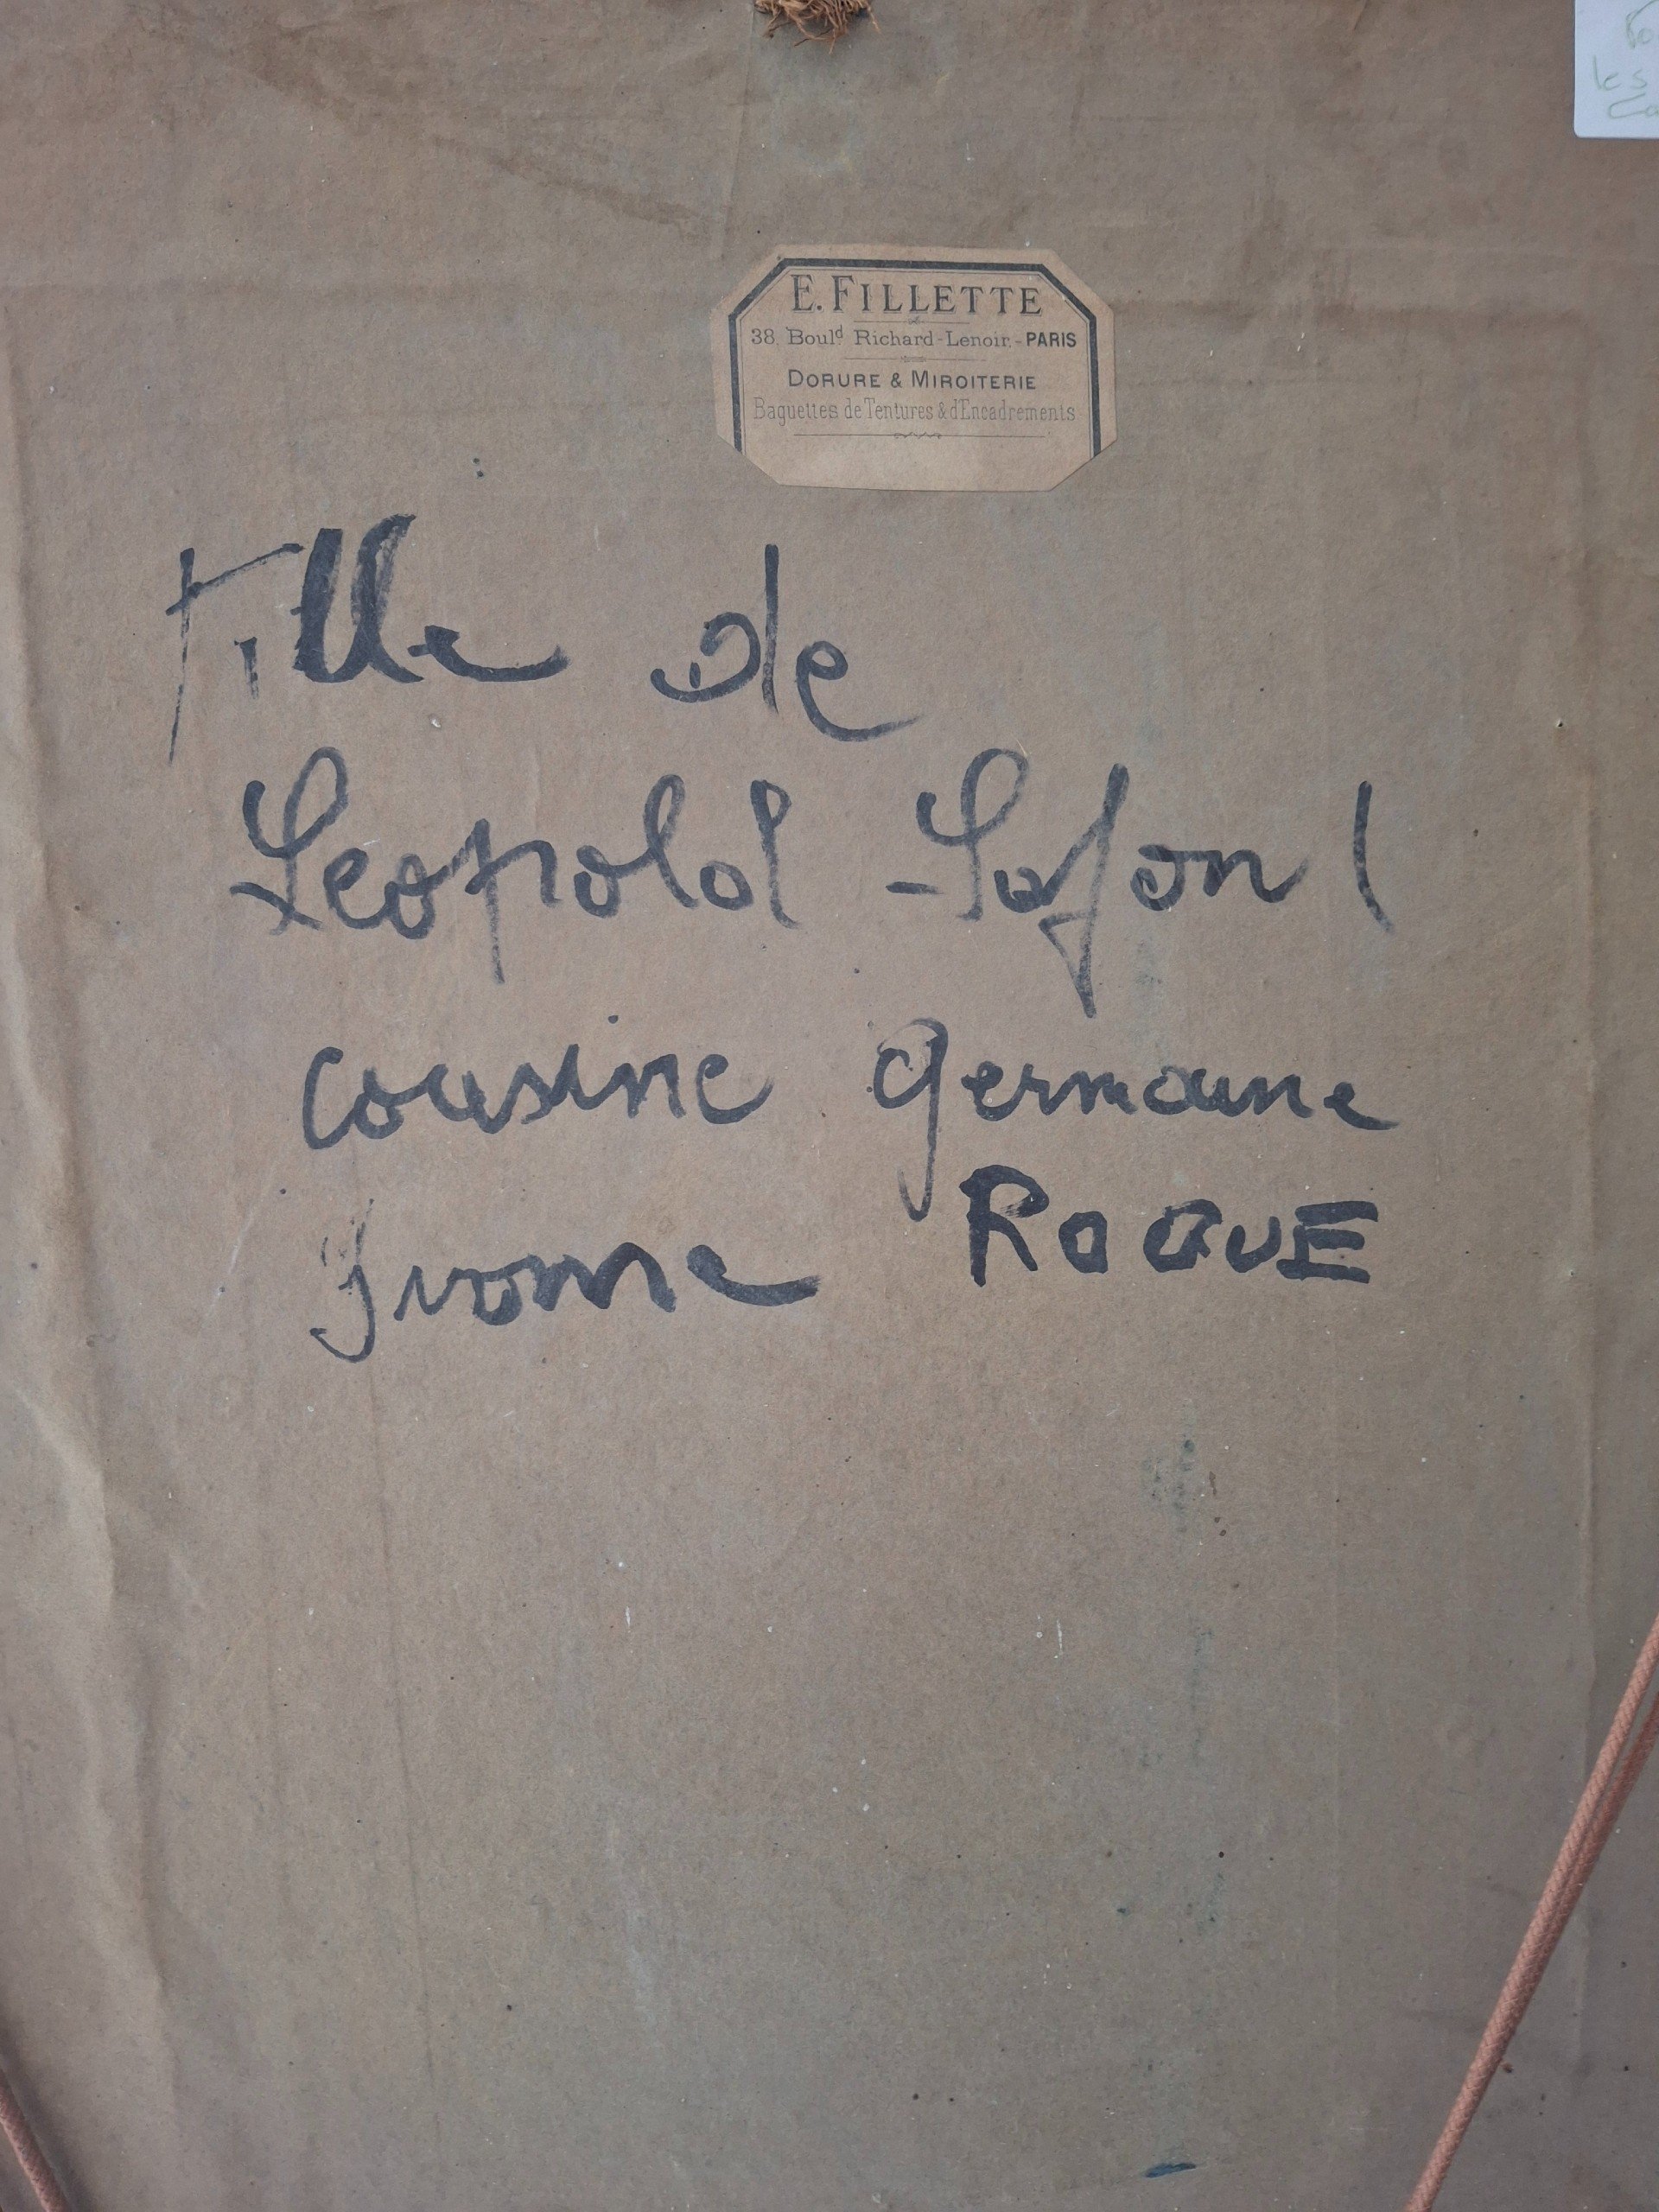 les
E. FILLETTE
38, Boul.d Richard-Lenoir.-PARIS
DORURE & MIROITERIE
Baguettes de Tentures & d'Encadrements
Fille de
Leopold - Lafon (
cousine germaine
Yvonne ROQUE